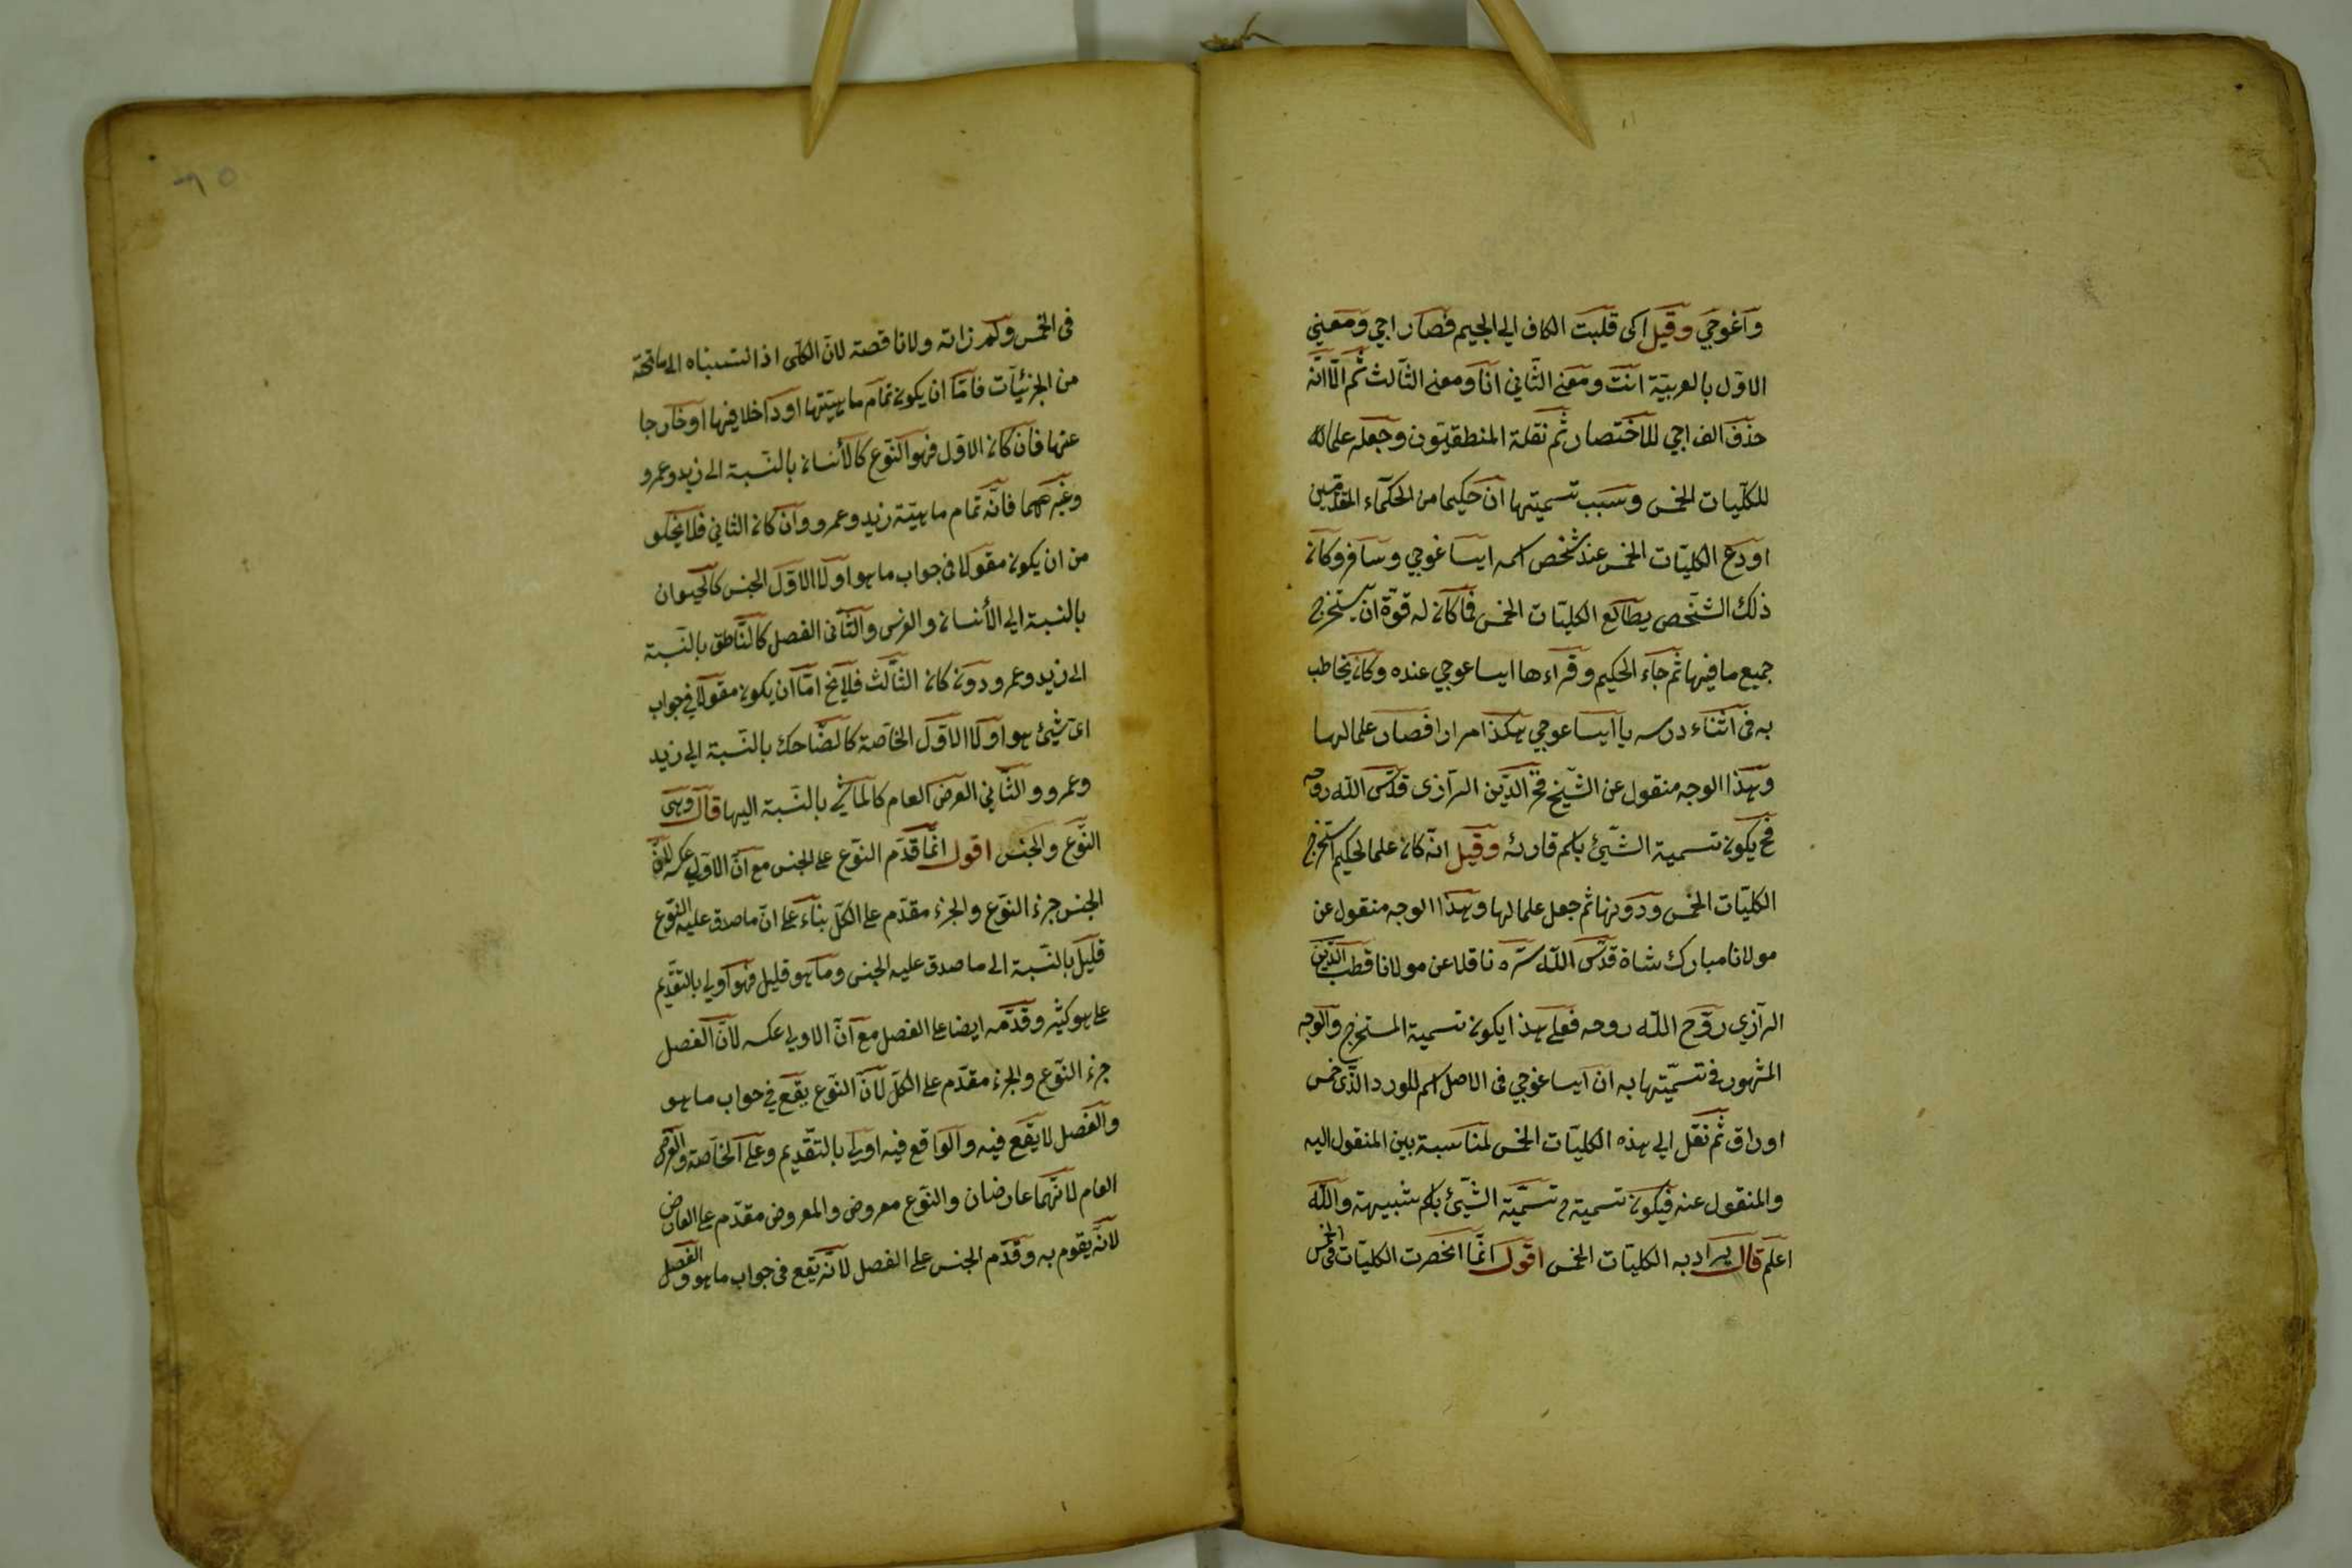 واغوجي وقيل اكى قلبت الكاف الى الجيم فصار اجي ومعنى
الاول بالعربية انت ومعنى الثاني انا ومعنى الثالث ثم الا انه
حذف الف اجي للاختصار ثم نقلة المنطقيون وجعله علما له
للكليات الخمس وسبب تسميتها ان حكيما من الحكماء المتقدمين
اودع الكليات الخمس عند شخص اسمه ايساغوجي وسافر وكان
ذلك الشخص يطالع الكليات الخمس فما كان له قوة ان يستخرج
جميع ما فيها ثم جاء الحكيم وقراءها ايساغوجي عنده وكان يخاطب
به في اثناء درسه يا ايساغوجي هكذا مرارا فصار علما لها
وهذا الوجه منقول عن الشيخ فخر الدين الرازى قدس الله روحه
فح يكون تسمية الشيئ باسم قارئه وقيل انه كان علما لحكيم استخرج
الكليات الخمس ودونها ثم جعل علما لها وهذا الوجه منقول عن
مولانا مبارك شاة قدس الله سره ناقلا عن مولانا قطب الدين
الرازي روح الله روحه فعلى هذا يكون تسمية المستخرج والوجه
المشهور في تسميتها به ان ايساغوجي في الاصل اسم للورد الذى خمس
اوراق ثم نقل الى هذه الكليات الخمس لمناسبة بين المنقول اليه
والمنقول عنه فيكون تسميته تسمية الشيئ باسم شبيهه والله
اعلم قال يراد به الكليات الخمس اقول انما انحصرت الكليات الخمس في
في الخمس ولم زاته ولا ناقصة لان الكلى اذا انتسبناه الى ما تحته
من الجزئيات فاما ان يكون تمام ماهيتها او داخلا فيها او خارجا
عنها فان كان الاول فهو النوع كالأنسان بالنسبة الى زيد وعمرو
وغيرهما فانه تمام ماهية زيد وعمرو وان كان الثاني فلا يخلو
من ان يكون مقولا في جواب ما هو او لا الاول الجنس كالحيوان
بالنسبة الى الأنسان والفرس والثانى الفصل كالناطق بالنسبة
الى زيد وعمرو وان كان الثالث فلا يخ اما ان يكون مقولا في جواب
اى شيئ هو او لا الاول الخاصة كالضاحك بالنسبة الى زيد
وعمرو والثاني العرض العام كالماشي بالنسبة اليها قال وهى
النوع والجنس اقول انما قدم النوع على الجنس مع ان الاولى عكسه لان
الجنس جزء النوع والجزء مقدم على الكل بناء على ان ما صدق عليه النوع
قليل بالنسبة الى ما صدق عليه الجنس وما هو قليل فهو اولى بالتقديم
على هو كثير وقدمه ايضا على الفصل مع ان الاولى عكسه لان الفصل
جزء النوع والجزء مقدم على الكل لان النوع يقع في جواب ما هو
والفصل لا يقع فيه والواقع فيه اولى بالتقديم وعلى الخاصة والعرض
العام لانهما عارضان والنوع معروض والمعروض مقدم على العارض
لانه يقوم به وقدم الجنس على الفصل لانه يقع في جواب ما هو والفصل